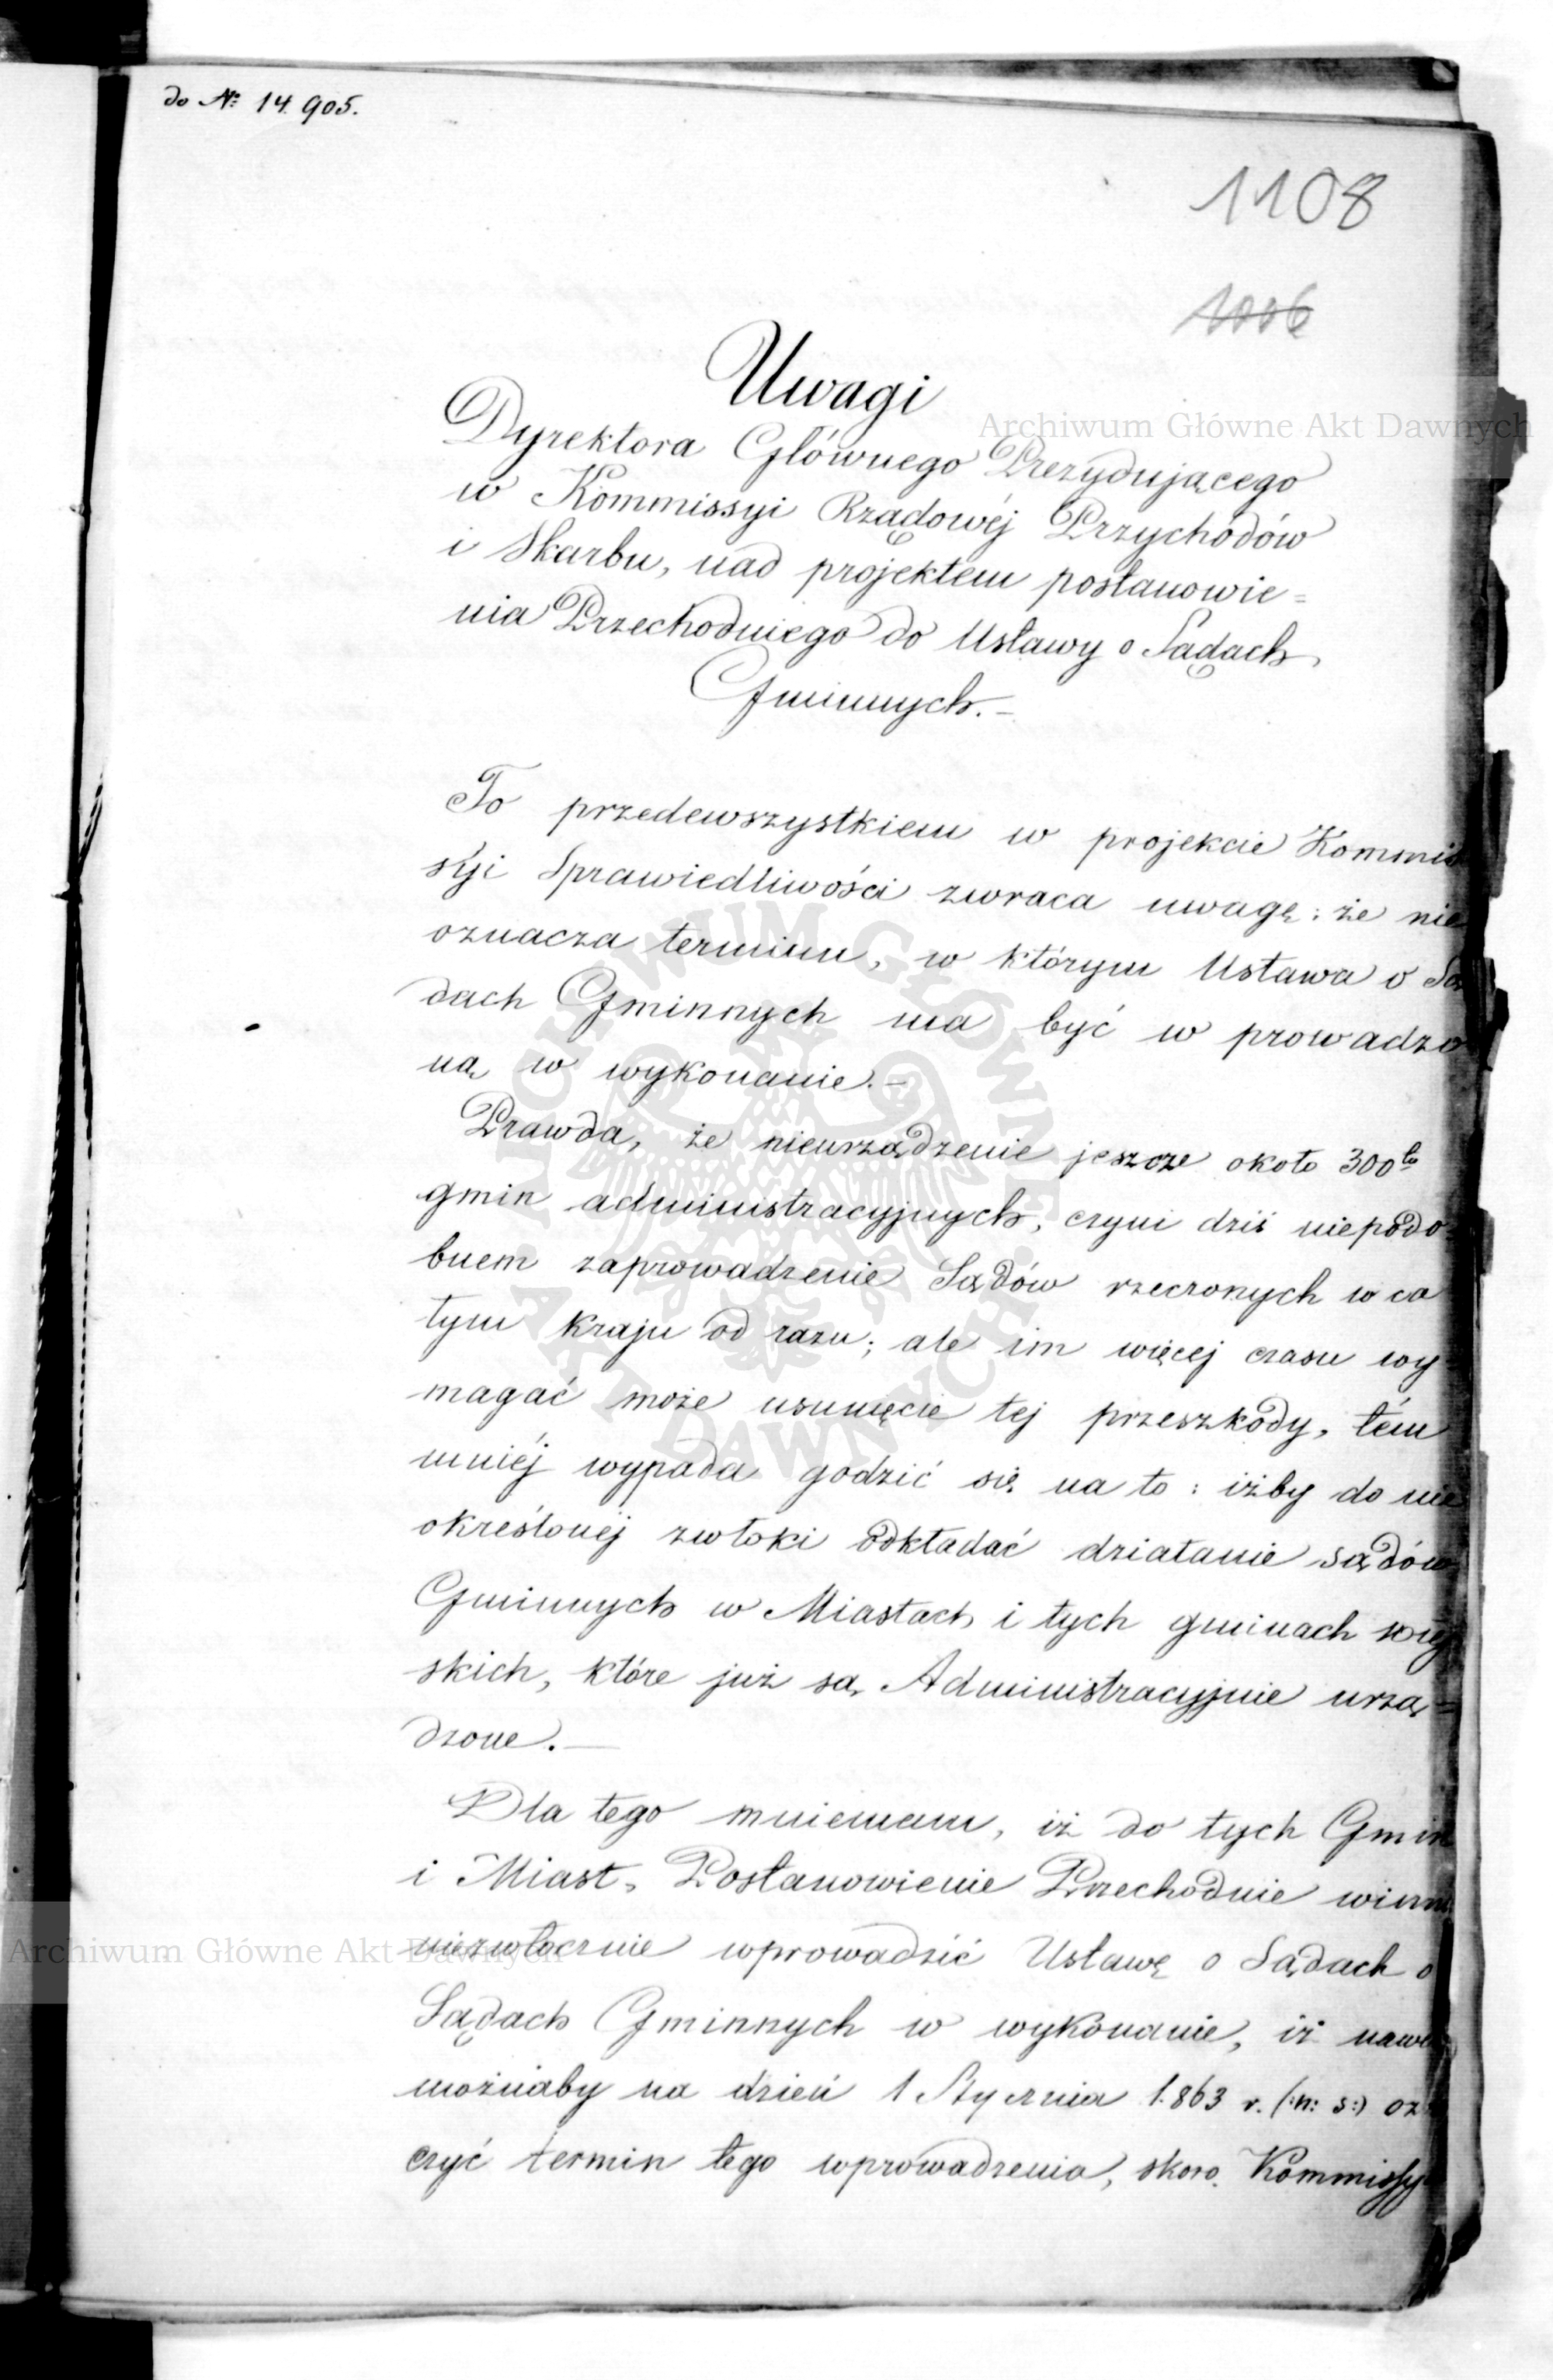 do № 14 905.
1108
1006
Uwagi
Dyrektora Głównego Prezydującego
w Kommissyi Rządowéj Przychodów
i Skarbu, nad projektem postanowie=
nia Przechodniego do Ustawy o Sądach
Gminnych.–
To przedewszystkiem w projekcie Kommis
syi Sprawiedliwości zwraca uwagę: że nie
oznacza terminu, w którym Ustawa o Są
dach Gminnych ma być w prowadzo
ną w wykonanie.–
Prawda, że nieurządzenie jeszcze około 300to
gmin administracyjnych, czyni dziś niepodo=
bnem zaprowadzenie Sądów rzeczonych w ca
łym kraju od razu; ale im więcej czasu wy=
magać może usunięcie tej przeszkody, tém
mniéj wypada godzić się na to: iżby do nie
określonéj zwłoki odkładać działanie sądów
Gminnych w Miastach i tych gminach wiej
skich, które już są Administracyjnie urzą=
dzone.—
Dla tego mniemam, iż do tych Gmin
i Miast, Postanowienie Przechodnie winn
niezwłocznie wprowadzić Ustawę o Sądach o
Sądach Gminnych w wykonanie, iż nawet
możnaby na dzień 1 Stycznia 1.863 r. (:n: s:) oz
czyć termin tego wprowadzenia, skoro Kommissy
Archiwum Główne Akt Dawnych
Archiwum Główne Akt Dawnych
ARCHIWUM GŁÓWNE AKT DAWNYCH